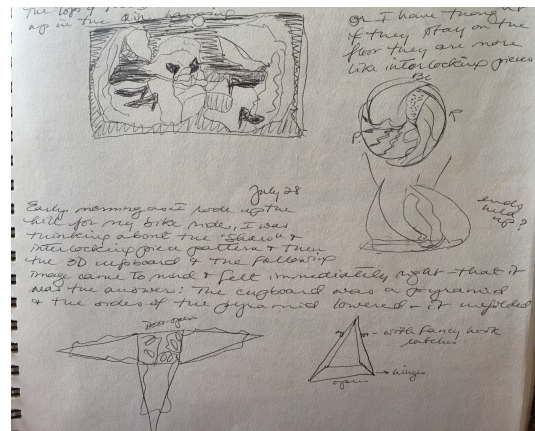 the
up in the
or I have thought
if they stay on the
floor they are more
like interlocking pieces
July 28
Early morning as I rode up the
hill for my bike ride, I was
thinking about the "Shadow" &
interlocking piece pattern & then
the 3D cupboard & the following
image came to mind & felt immediately right - that it
was the answer: The cupboard was a pyramid
& the sides of the pyramid lowered - it unfolded
ends
held
up?
Door open
with fancy hook
latches
hinges
open